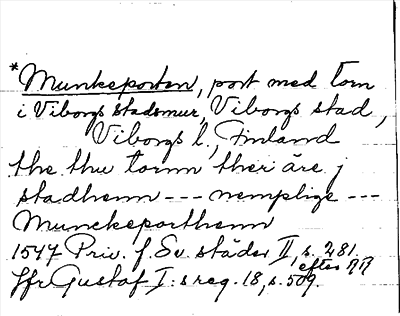 *Munkeporten, port med torn
i Viborgs stadsmur, Viborgs stad,
Viborgs l., Finland
the thu tornn ther äre j
stadhenn --- nemplige ---
Munckeporthenn
1547 Priv. f. Sv. städer II, s. 281.
Jfr Gustaf I:s reg. 18, s. 509. efter RR